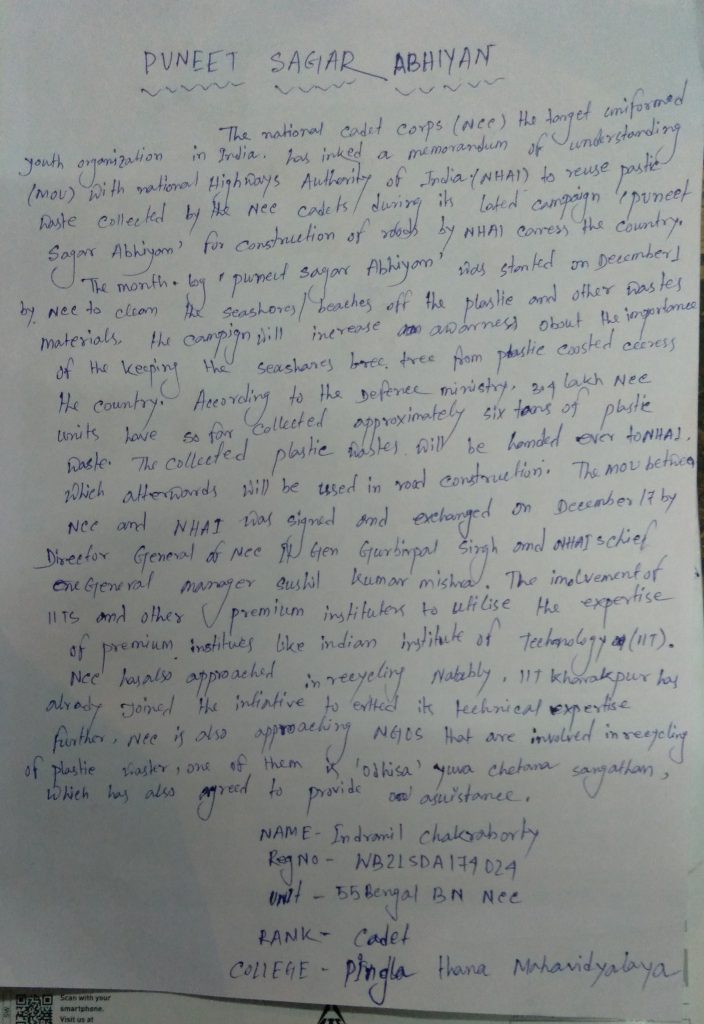 PUNEET SAGAR ABHIYAN
The national cadet corps (Ncc) the target uniformed
youth organization in India. has inked a memorandum of understanding
(MOU) With national Highways Authority of India (NHAI) to reuse pastic
waste collected by the Ncc cadets during its lated campaign 'puneet
Sagar Abhiyan' for construction of roads by NHAI caress the country.
The month. by 'puneet sagar Abhiyan' was started on December 1
by Ncc to clean the seashores/beaches off the plastic and other wastes
materials. the campaign will increase awarness about the importance
of the keeping the seashares tree from plastic coosted cceress
the country. According to the Defence ministry. 3.4 lakh Ncc
units have so far collected approximately six tans of plastic
waste. The collected plastic wastes will be handed over to NHAI.
which afterwards will be used in road construction. The MOU between
Ncc and NHAI was signed and exchanged on December 17 by
Director General of Ncc Gen Gurbirpal Singh and NHAI schief
General manager Sushil Kumar mishra. The imolvement of
IITS and other premium instituters to utilise the expertise
of premium institues like indian institute of Technology (IIT).
Ncc has also approached in recycling Natably. IIT kharakpur has
alrady joined the intiative to its technical expertise
further, Ncc is also approaching NGOS that are involved in recycling
of plastic waster, one of them is 'Odhisa' yuva chetana sangathan,
which has also agreed to provide asuistance.
NAME - Indranil chakraborty
Reg No - WB21SDA174024
Unit - 55 Bengal BN Ncc
RANK - Cadet
COLLEGE - Pingla thana Mahavidyalaya
Scan with your
smartphone.
Visit us at